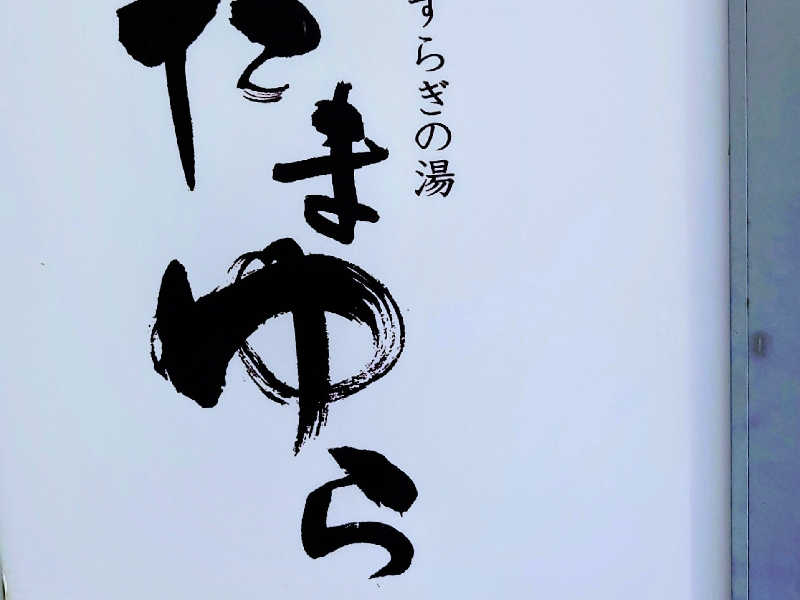 すらぎの湯
たまゆら